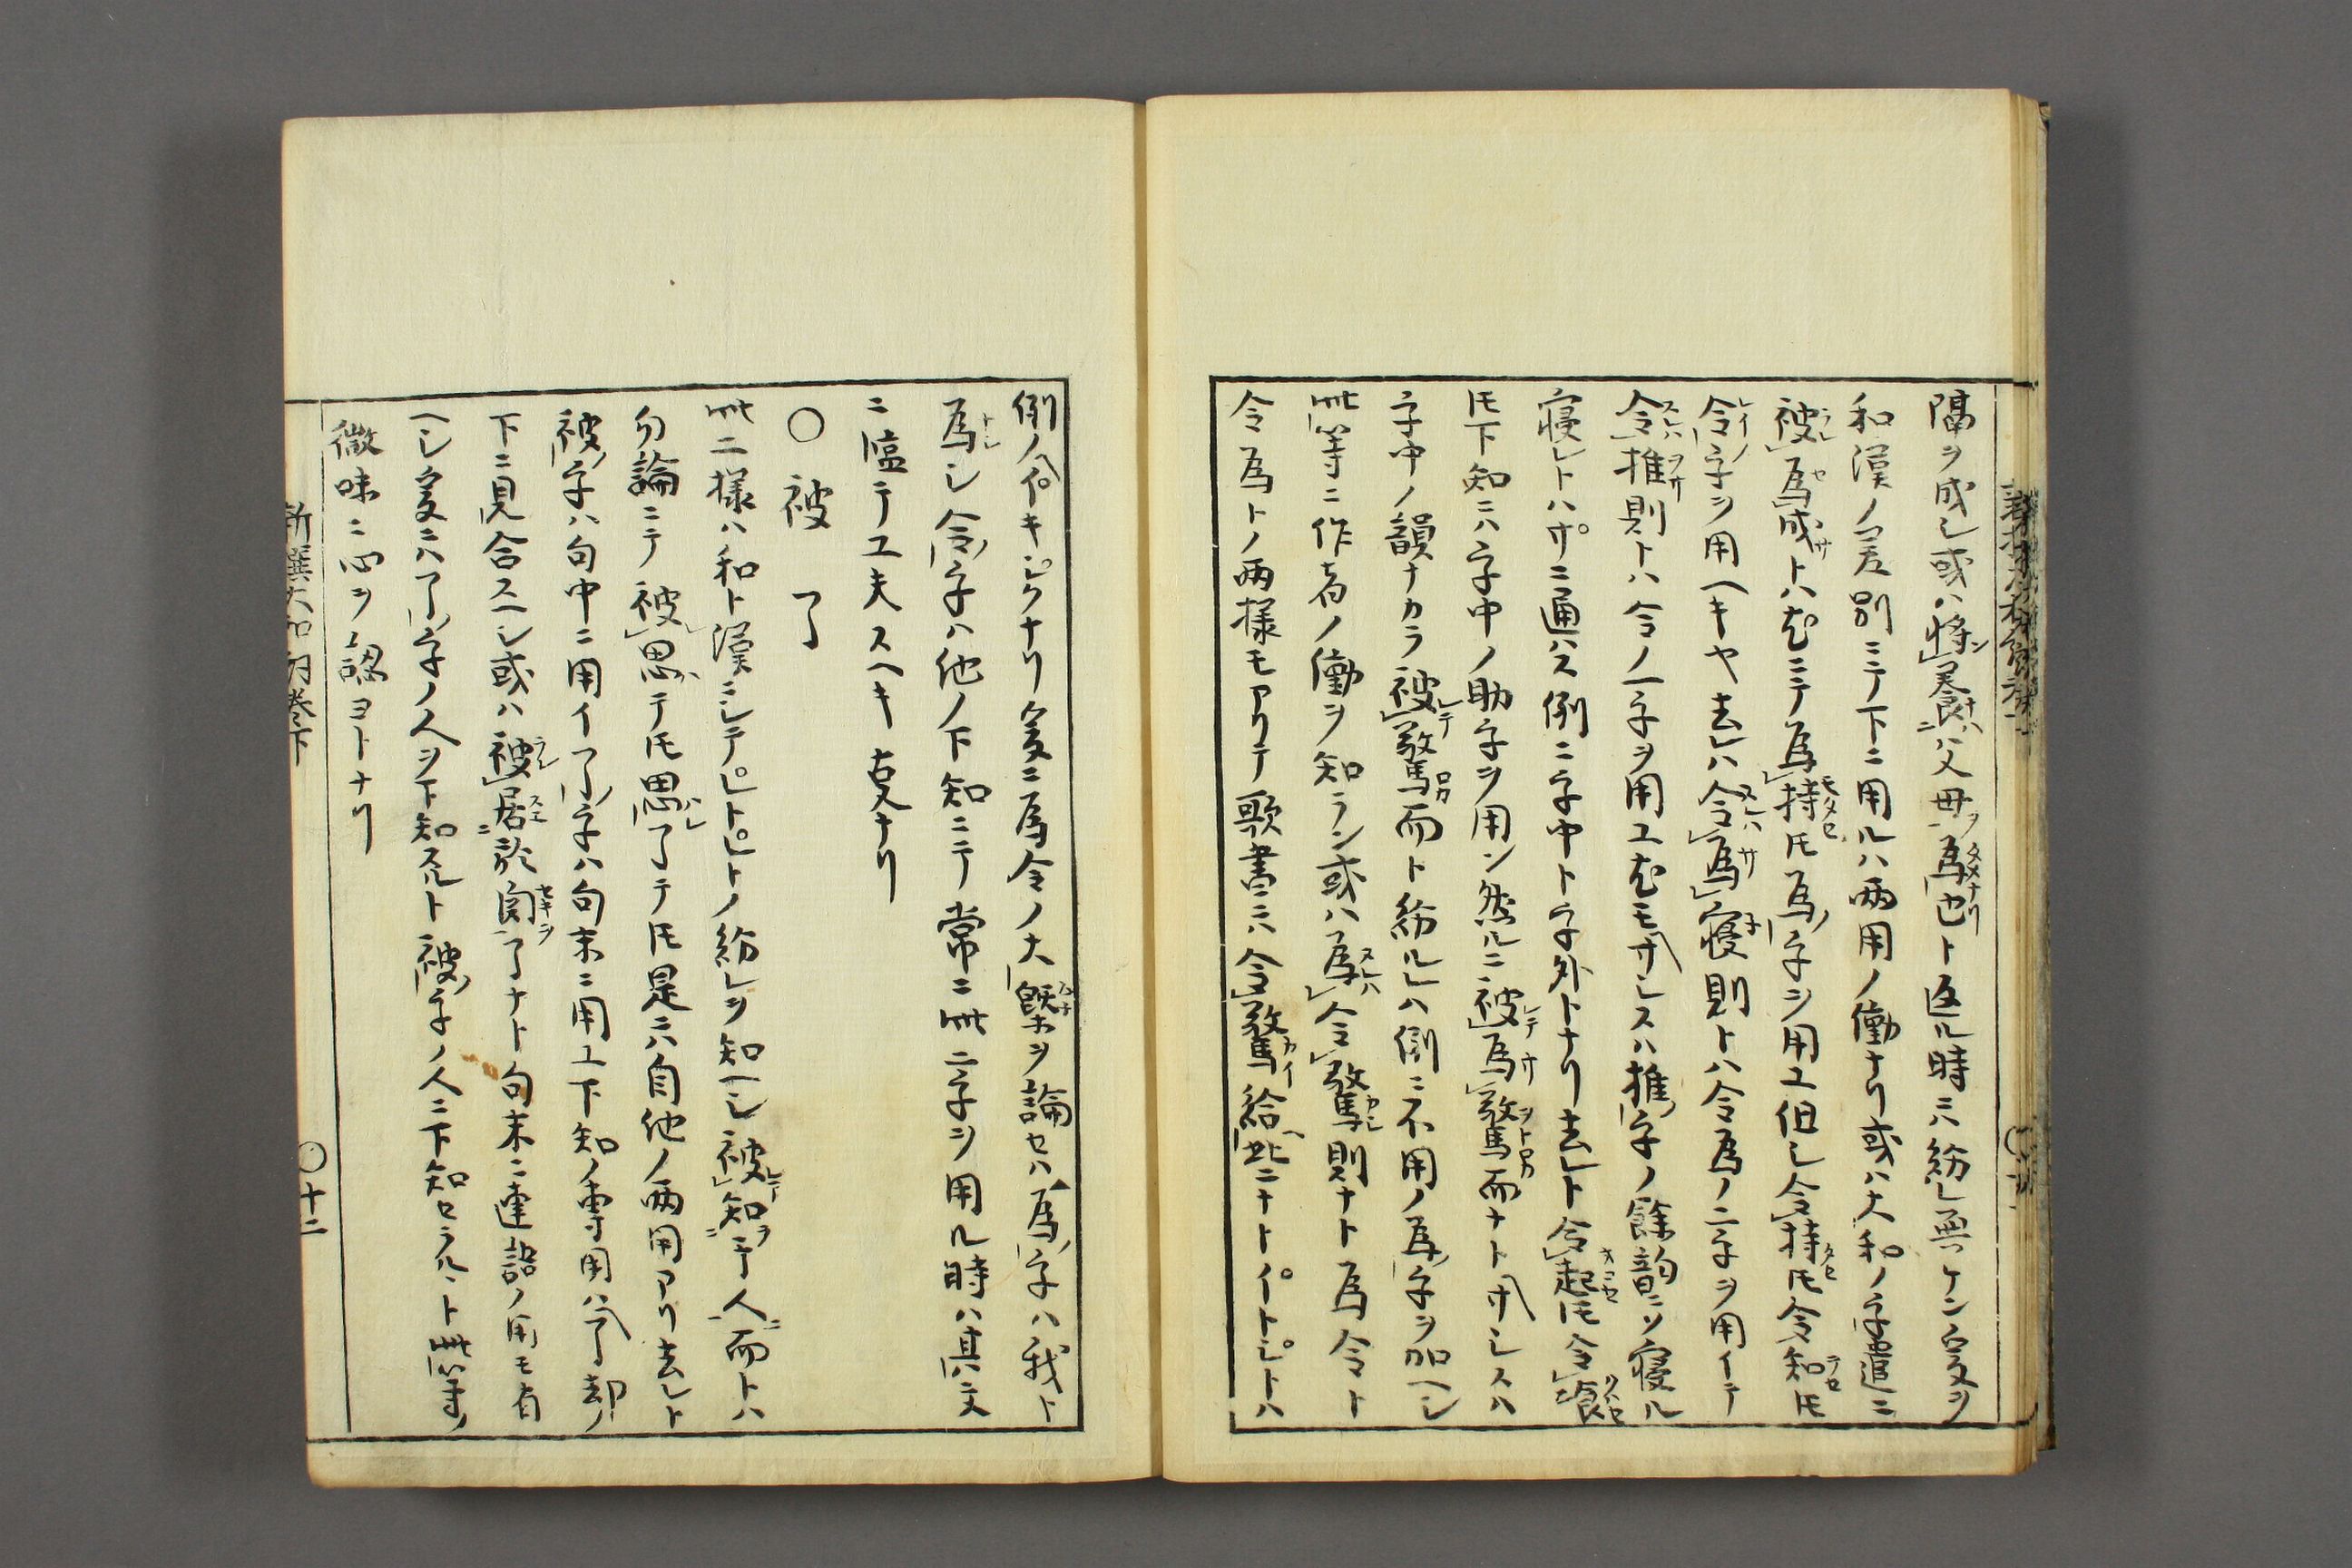 隔ヲ成シ或ハ將養ハ父母ヲ為也ト返ル時ニハ紛レ無ケン爰ヲ
和漢ノ差別ニテ下ニ用ルハ両用ノ働ナリ或ハ大和ノ字遣ニ
被為成トハ尤ニテ為持トモ為字ヲ用ユ但シ令持トモ令知トモ
令字ヲ用ヘキヤ去レハ令為寝則トハ令為ノ二字ヲ用イテ
令推則トハ令ノ一字ヲ用ユ尤モサレスハ推字ノ餘韵ニソ寝ル
寝レトハサニ通ハス例ニ字中ト字外トナリ去レト令起トモ令喰
トモ下知ニハ字中ノ助字ヲ用ン然ルニ被為驚而ナトサレスハ
字中ノ韻ナカラ被驚而ト紛ルレハ例ニ不用ノ為字ヲ加ヘシ
此等ニ作者ノ働ヲ知ラン或ハ為令驚則ナト為令ト
令為トノ両様モアリテ歌書ニハ令驚給此ニナトイトシトハ
例ノイキシケナリ爰ニ為令ノ大槩ヲ論セハ為字ハ我ト
為シ令字ハ他ノ下知ニテ常ニ此二字ヲ用ル時ハ其文
ニ臨テ工夫スヘキ支ナリ
○ 被 了
此二様ハ和ト漢ニシテヒトヒトノ紛レヲ知ヘシ被知テ人而トハ
勿論ニテ被思テトモ思了テトモ是ニハ自他ノ両用アリ去レト
被字ハ句中ニ用イ了字ハ句末ニ用ユ下知ノ専用ハ了却ノ
下ニ見合スヘシ或ハ被居於関了ナト句末ニ連語ノ用モ有
ヘシ爰ニハ了字ノ人ヲ下知スルト被字ノ人ニ下知セラルヽト此等ノ
微味ニ心ヲ認ヨトナリ
新撰大和詞巻下
○十二